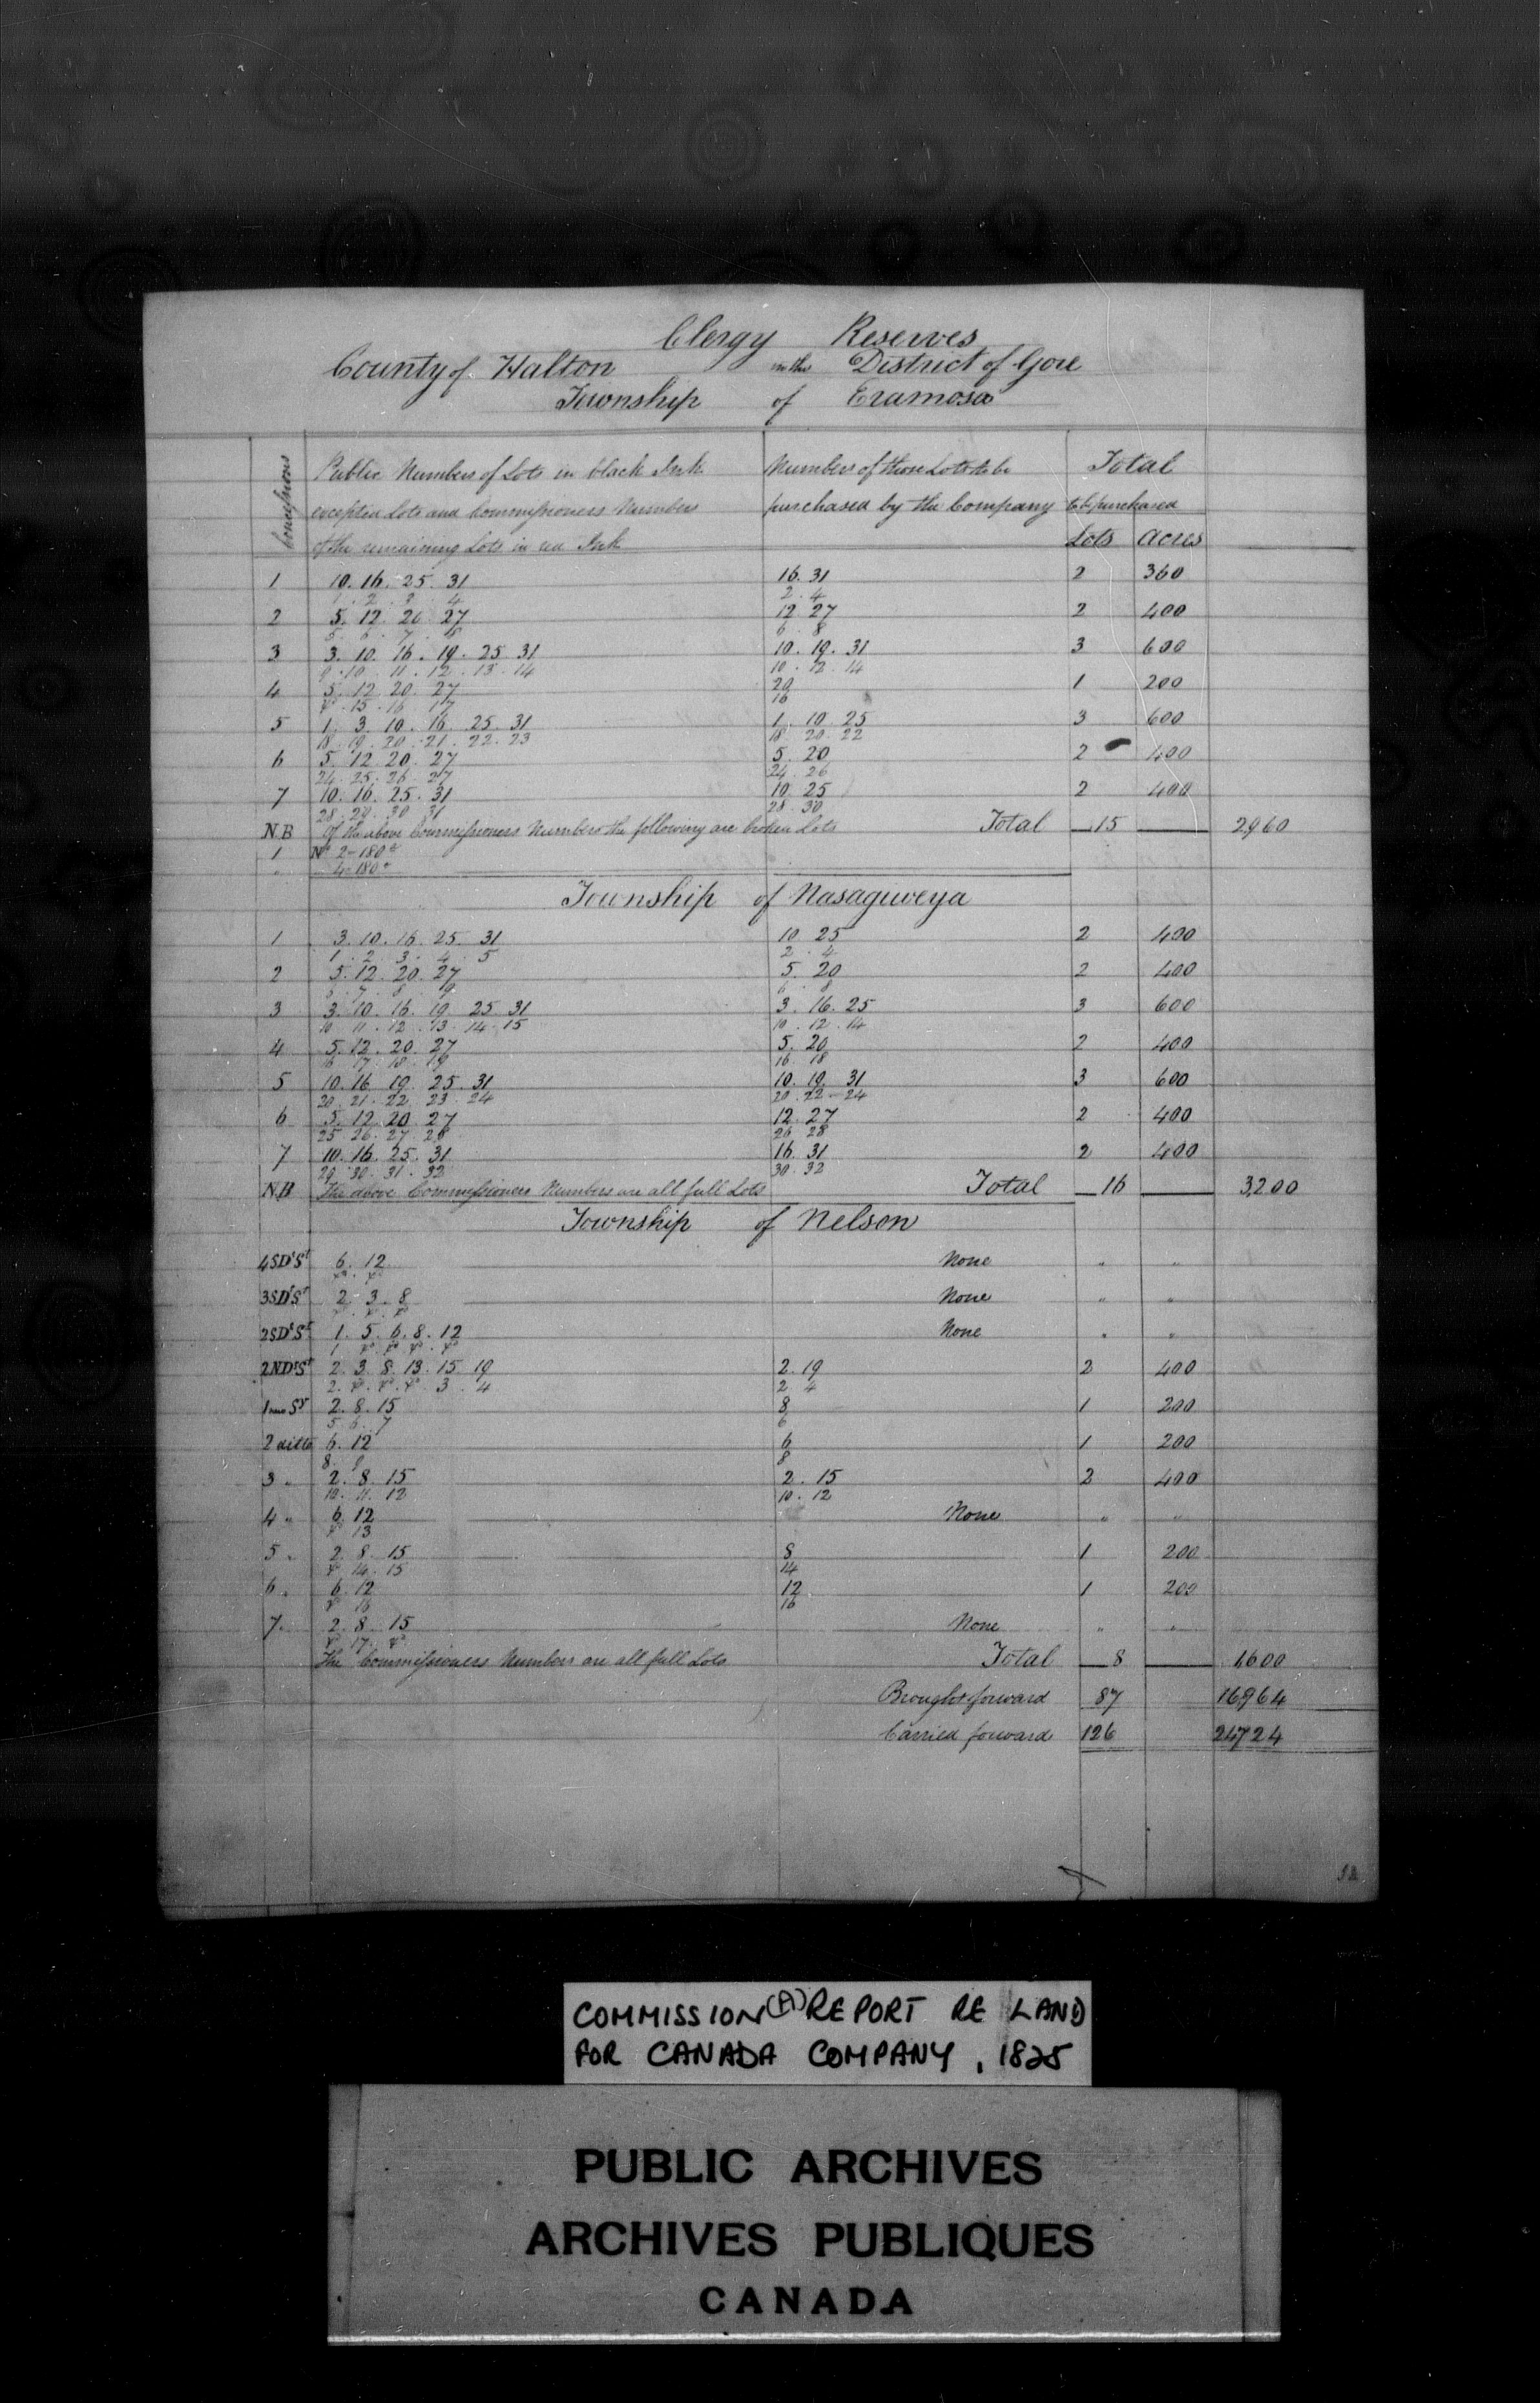 Clergy Reserves
County of Halton in the District of Gore
Township of Eramosa
Concessions
Public Numbers of Lots in black Ink
excepted Lots and Commissioners Numbers
of the remaining Lots in red Ink
Numbers of those Lots to be
purchased by the Company
Total
to be purchased
Lots Acres
1 10. 16. 25. 31 16. 31 2 360
1 . 2 . 3 . 4 2 . 4
2 5. 12. 20. 27 12 27 2 400
5 . 6 . 7 . 8 6 . 8
3 3. 10. 16. 19. 25 31 10. 19. 31 3 600
9 . 10 . 11 . 12 . 13 . 14 10 . 12 . 14
4 5. 12 20. 27 20 1 200
. 15 . 16 . 17 16
5 1. 3 10. 16. 25. 31 1. 10 25 3 600
18. 19. 20 . 21 . 22. 23 18. 20. 22
6 5. 12 20. 27 5. 20 2 400
24. 25. 26. 27 24. 26
7 10. 16. 25. 31 10. 25 2 400
28. 29. 30 31 28. 30
N.B Of the above Commissioners Numbers the following are broken Lots Total 15 2960
1 No 2 - 180 a
" 4 - 180 a
Township of Nasagiweya
1 3. 10. 16. 25. 31 10 25 2 400
1 . 2 . 3 . 4 . 5 2 . 4
2 5. 12. 20. 27 5. 20 2 400
6 . 7 . 8 . 9 6 . 8
3 3. 10. 16. 19. 25. 31 3. 16. 25 3 600
10 . 11 . 12 . 13 . 14 . 15 10 . 12 . 14
4 5. 12. 20. 27 5. 20 2 400
16 17. 18. 19 16. 18
5 10. 16. 19. 25. 31 10. 19. 31 3 600
20. 21. 22. 23. 24 20. 22 - 24
6 5. 12. 20. 27 12. 27 2 400
25 26. 27. 28 26 28
7 10. 16. 25. 31 16. 31 2 400
29 30. 31. 32 30. 32
N.B The above Commissioners Numbers are all full Lots Total 16 3,200
Township of Nelson
4 SDsSt 6. 12 None " "
3 SDsSt 2. 3. 8 None " "
2 SDsSt 1. 5. 6. 8. 12 None " "
1
2 NDsSt 2. 3. 8. 13. 15. 19 2. 19 2 400
2. 3 . 4 2 4
1 new Sy 2. 8. 15 8 1 200
5 6. 7 6
2 ditto 6. 12 6 1 200
8. 9 8
3 " 2. 8. 15 2. 15 2 400
10. 11. 12 10. 12
4 " 6. 12 None " "
13
5 " 2. 8. 15 8 1 200
14. 15 14
6 " 6. 12 12 1 200
16 16
7 " 2. 8. 15 None " "
17
The Commissioners Numbers are all full Lots Total 8 1600
Brought forward 87 16964
Carried forward 126 24724
COMMISSION(A) REPORT RE LAND
FOR CANADA COMPANY, 1825
PUBLIC ARCHIVES
ARCHIVES PUBLIQUES
CANADA